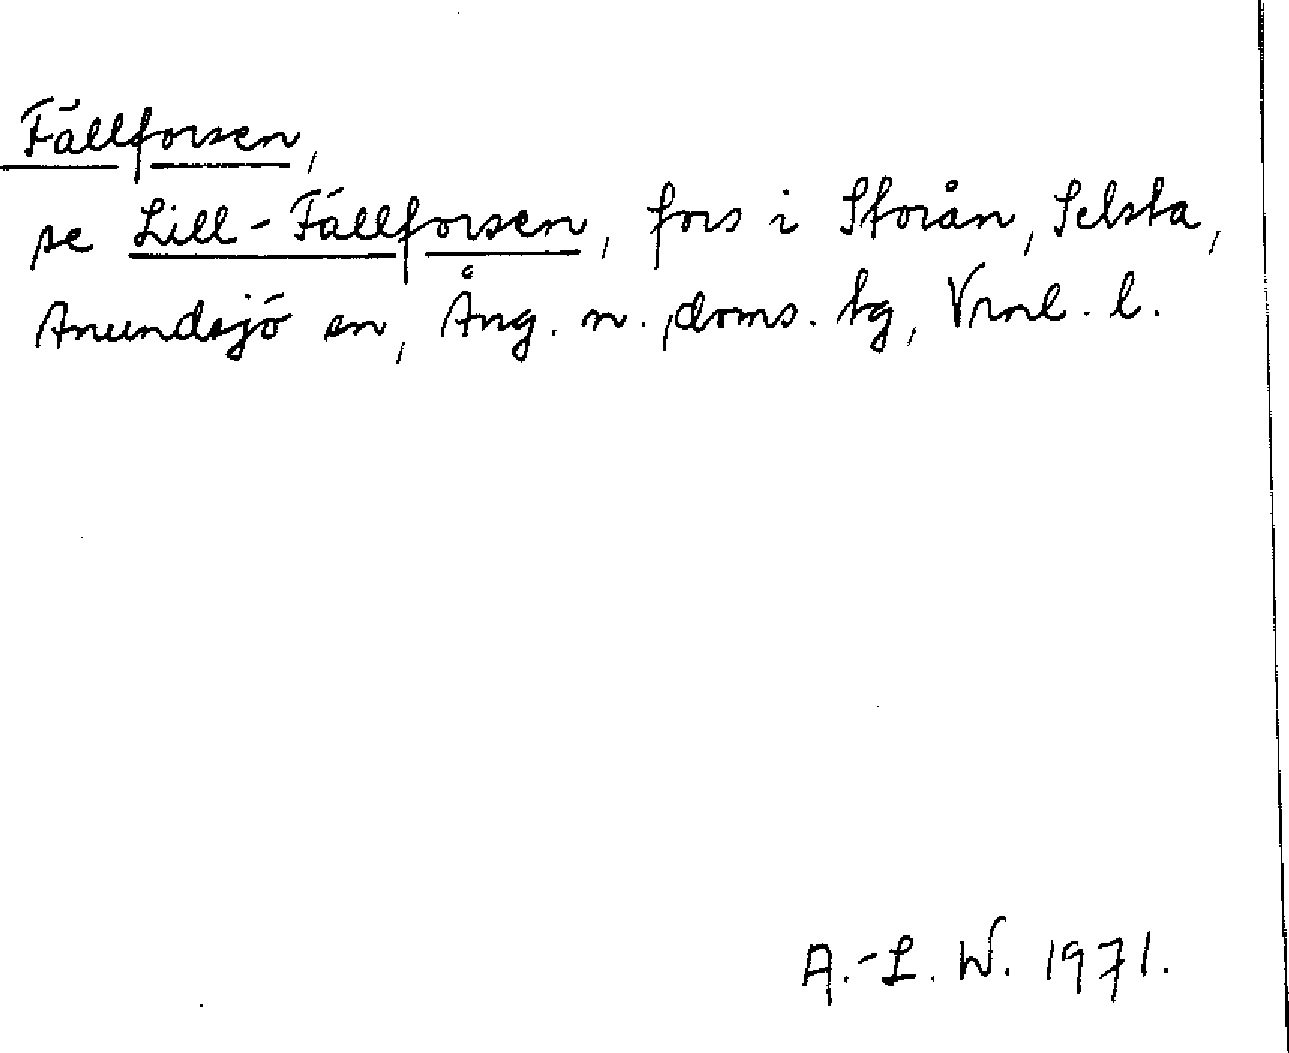 Fällforsen,
se Lill-Fällforsen, fors i Storån, Selsta,
Anundsjö sn, Ång. n. doms. tg, Vrnl. l.
A.-L. W. 1971.